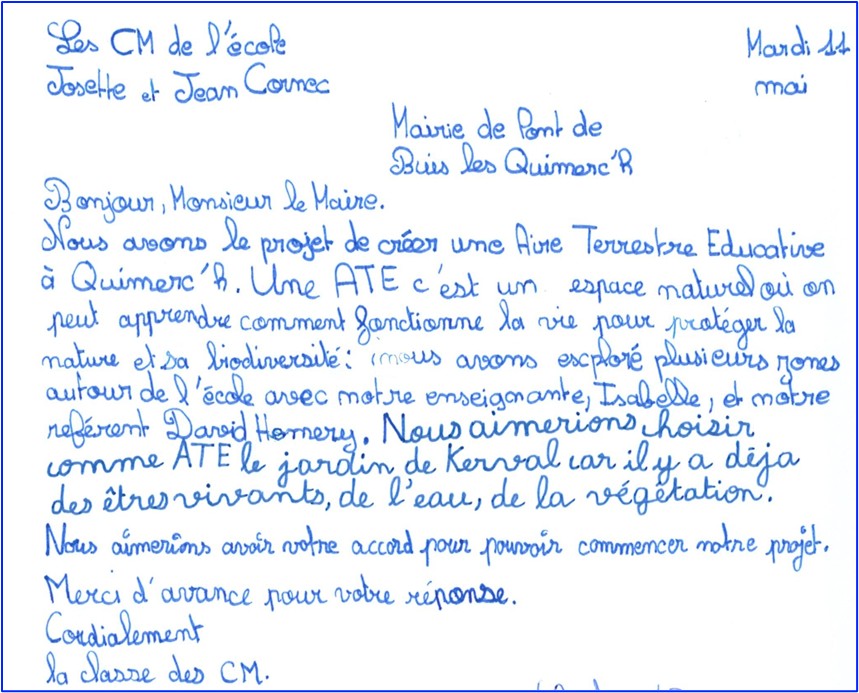 Les CM de l'école
Josette et Jean Cornec
Mardi 11
mai
Mairie de Pont de
Buis les Quimerc'h
Bonjour, Monsieur le Maire.
Nous avons le projet de créer une Aire Terrestre Educative
à Quimerc'h. Une ATE c'est un espace naturel où on
peut apprendre comment fonctionne la vie pour protéger la
nature et sa biodiversité: nous avons escploré plusieurs zones
autour de l'école avec notre enseignante, Isabelle, et notre
reférent David Homery. Nous aimerions choisir
comme ATE le jardin de Kerval car il y a déja
des êtres vivants, de l'eau, de la végétation.
Nous aimerions avoir votre accord pour pouvoir commencer notre projet.
Merci d'avance pour votre réponse.
Cordialement
la classe des CM.